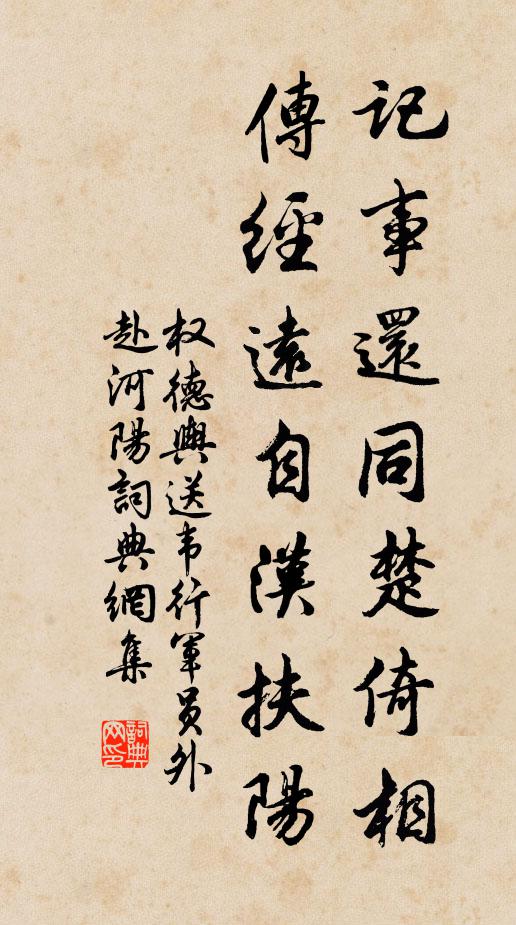 記事還同楚倚相
傳經遠自漢扶陽
权德輿送韦行軍员外
赴河陽詞典網集
詞典
网印